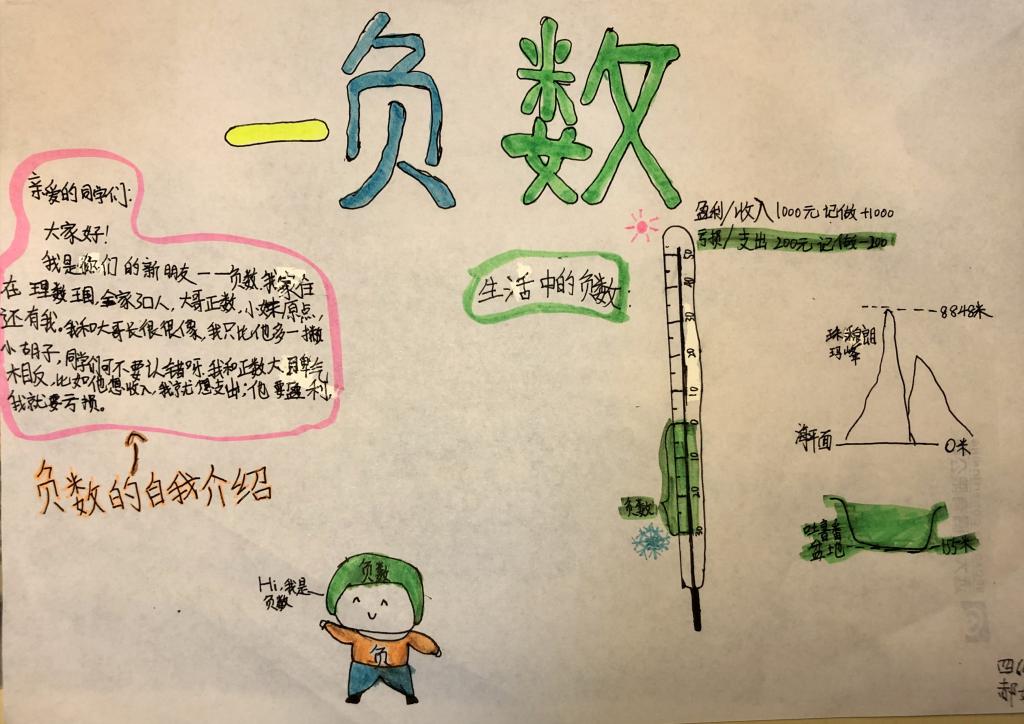 一负数
亲爱的同学们:
大家好!
我是你们的新朋友——负数,我家住
在理数王国,全家30人,大哥正数,小妹原点,
还有我。我和大哥长很很像,我只比他多一撇
小胡子,同学们可不要认错呀。我和正数大哥脾气
相反,比如他想收入,我就想支出;他要盈利,
我就要亏损。
负数的自我介绍
生活中的负数
盈利/收入1000元记做+1000
亏损/支出200元记做-200
50
40
30
20
10
0
10
20
30
负数
8848米
珠穆朗
玛峰
海平面
0米
吐鲁番
盆地
-155米
Hi,我是
负数
负数
负
四
郝